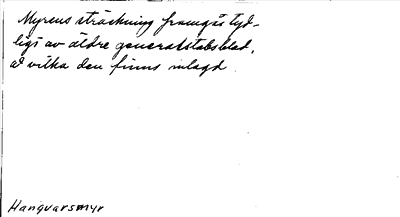 Myrens sträckning framgår tyd-
ligt av äldre generalstabsblad,
å vilka den finns inlagd.
Hanguarsmyr